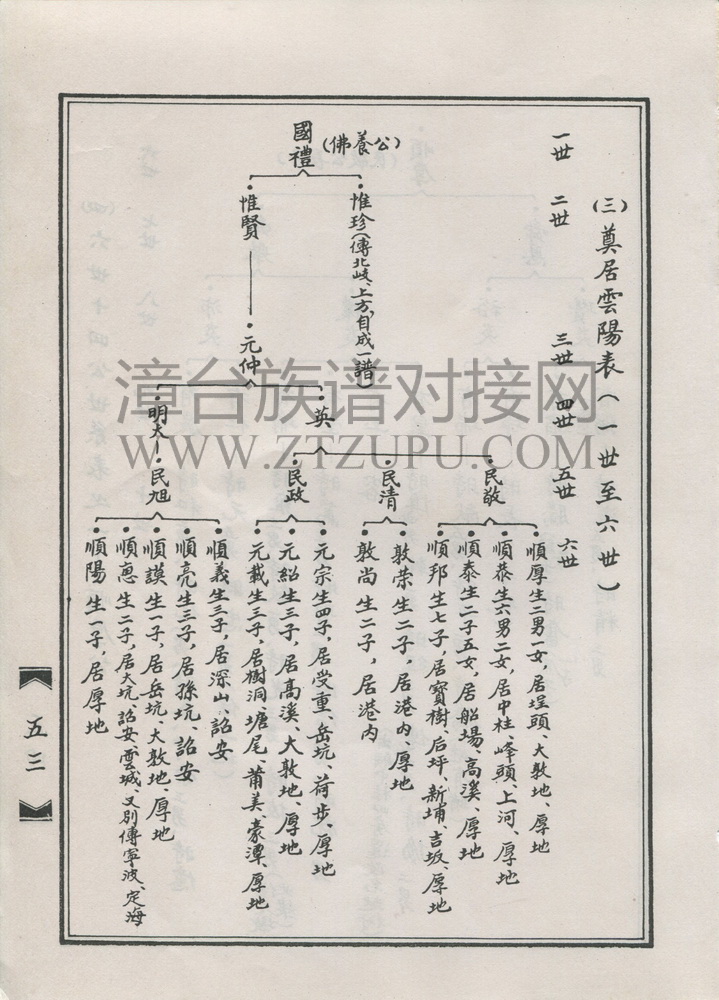 (三)奠居雲陽表(一世至六世)
一世
二世
三世
四世
五世
六世
國禮
(佛養公)
惟珍(傳北岐、上方,自成一譜)
惟賢
元仲
英
明大
民敬
民清
民政
民旭
順厚生二男一女,居埕頭、大敦地、厚地
順恭生六男二女,居中柱、峰頭、上河、厚地
順泰生二子五女,居船場、高溪、厚地
順邦生七子,居寶樹、后坪、新埔、吉坂、厚地
敦荣生二子,居港內、厚地
敦尚生二子,居港內
元宗生四子,居受重、岳坑、荷步、厚地
元紹生三子,居高溪、大敦地、厚地
元載生三子,居樹洞、塘尾、莆美、豪潭、厚地
順義生三子,居深山、詔安
順亮生三子,居孫坑、詔安
順謨生一子,居岳坑、大敦地、厚地
順惠生二子,居大坑、詔安、雲城、又别傳寧波、定海
順陽生一子,居厚地
五三
漳台族谱对接网
WWW.ZTZUPU.COM